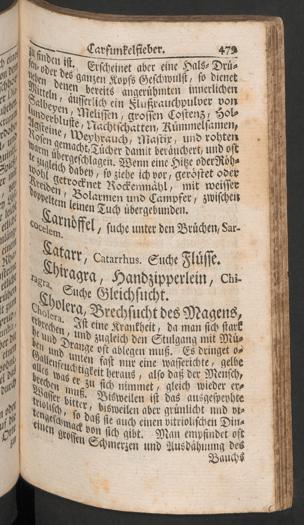 Carfunkelfieber. 479
zu finden ist. Erscheinet aber eine Hals- Drü-
sen- oder des ganzen Kopfs Geschwulst, so dienet
neben denen bereits angerühmten innerlichen
Mitteln, äusserlich ein Flußrauchpulver von
Salbeyen, Melissen, grossen Costenz, Hol-
lunderblust, Nachtschatten, Kümmelsamen,
Agsteine, Weyhrauch, Mastix, und rohten
Rosen gemacht, Tücher damit beräuchert, und oft
warm übergeschlagen. Wenn eine Hitze oder Röh-
te zugleich dabey, so ziehe ich vor, geröstet oder
wohl getrocknet Rockenmähl, mit weisser
Kreiden, Bolarmen und Campfer, zwischen
doppeltem leinen Tuch übergebunden.
Carnöffel, suche unter den Brüchen, Sar-
cocelem.
Catarr, Catarrhus. Suche Flüsse.
Chiragra, Handzipperlein, Chi-
ragra. Suche Gleichsucht.
Cholera, Brechsucht des Magens,
Cholera. Ist eine Krankheit, da man sich stark
erbrechen, und zugleich den Stulgang mit Mü-
hen und Drange oft ablegen muß. Es dringet o-
ben und unten fast nur eine wasserichte, gelbe
Gallenfeuchtigkeit heraus, also daß der Mensch,
alles was er zu sich nimmet, gleich wieder er-
brechen muß. Bisweilen ist das ausgespeyhte
Wasser bitter, bisweilen aber grünlicht und vi-
triolisch, so daß sie auch einen vitriolischen Din-
tengeschmack von sich gibt. Man empfindet oft
einen grossen Schmerzen und Ausdähnung des
Bauchs